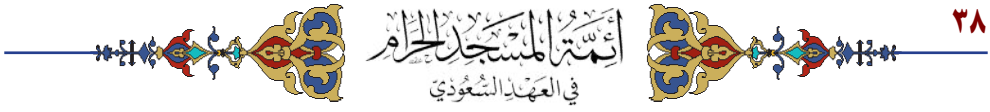 ٣٨
أَئِمَّةُ المَسْجِدِ الحَرَامِ
في العَهْدِ السُّعُودِيّ